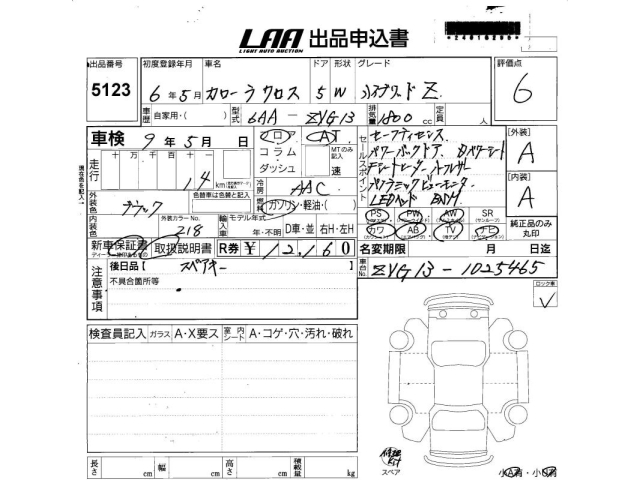 LAA 出品申込書
LIGHT AUTO AUCTION
出品番号 初度登録年月 車名 ドア 形状 グレード 評価点
5123 6年5月 カローラクロス 5 W ハイブリッド Z 6
車歴 自家用・( ) 型式 6AA - ZVG13 排気量 1800cc 定員 人
車検 9年5月 日 フロア AT セールスポイント セーフティセンス [外装]
コラム MTのみ記入 パワーバックドア、Dパワーシート A
走行 十万 万 千 百 十 ダッシュ 速
14 km 冷房 AAC パノラミックビューモニター [内装]
現在色を記入。 外装色 ブラック 色替車は色替と記入 燃料 ガソリン・軽油・( ) LEDヘッド BSM A
PS PW AW SR
内装色 外装カラーNo. 218 輸入車 モデル年式 年・不明 D車・並 右H・左H カワ AB TV ナビ 純正品のみ丸印
新車保証書 取扱説明書 R券 ¥ 12,160 名変期限 月 日迄
注意事項 後日品[ スペアキー ] 車台No. ZVG13-1025465
不具合箇所等 ロック車
検査員記入 ガラス A・X要ス 室内シート A・コゲ・穴・汚れ・破れ
長さ cm 幅 cm 高さ cm 積載量 kg
修理Kit
スペア
小A有・小U有